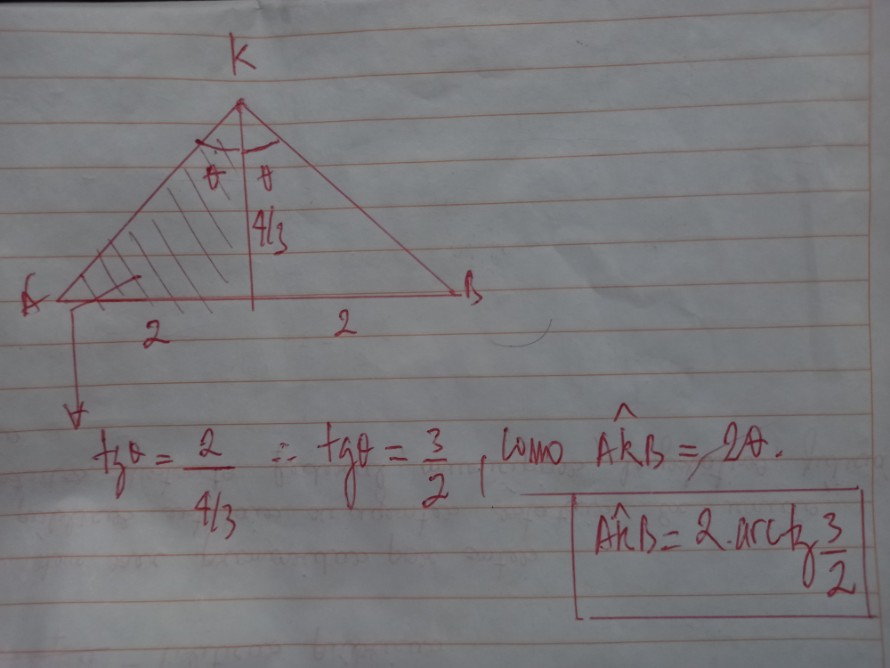 K
θ θ
4/3
A B
2 2
tgθ = 2/4/3 ∴ tgθ = 3/2, como AK̂B = 2θ.
AK̂B = 2.arctg 3/2